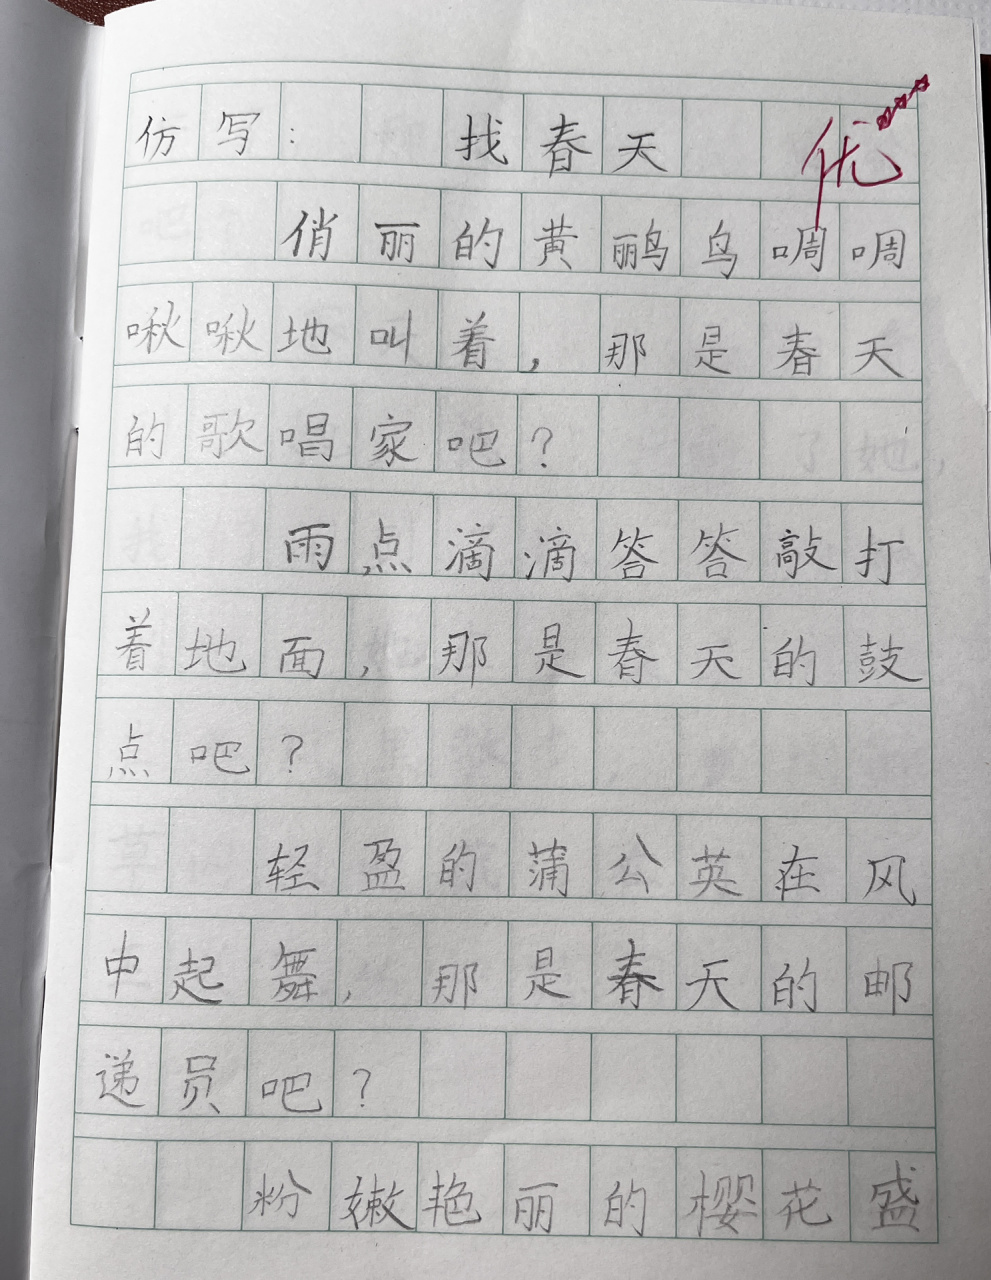 仿写： 找春天 优
俏丽的黄鹂鸟啁啁
啾啾地叫着，那是春天
的歌唱家吧？
雨点滴滴答答敲打
着地面，那是春天的鼓
点吧？
轻盈的蒲公英在风
中起舞，那是春天的邮
递员吧？
粉嫩艳丽的樱花盛